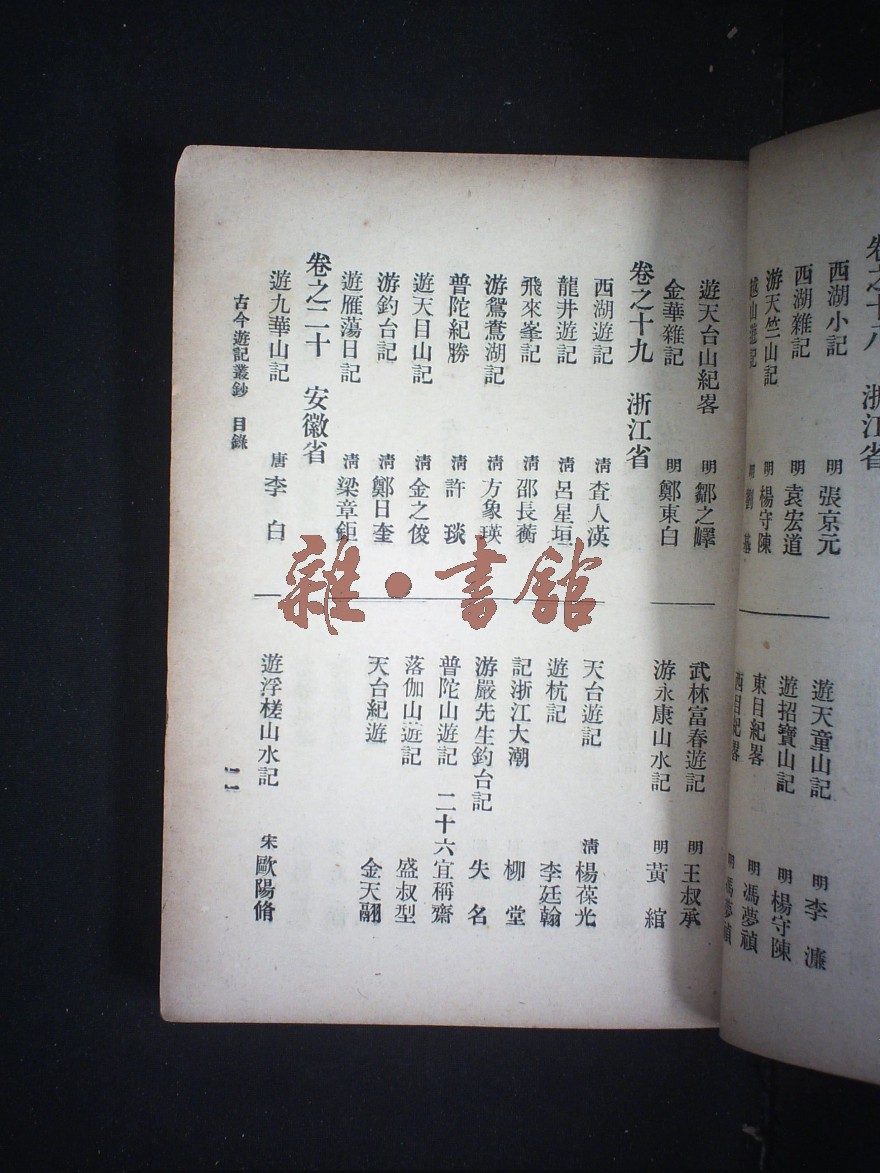 卷之十八　浙江省
西湖小記　明　張京元
西湖雜記　明　袁宏道
游天竺山記　明　楊守陳
越山遊記　明　劉基
遊天童山記　明　李濂
遊招寶山記　明　楊守陳
東目紀畧　明　馮夢禎
西目紀畧　明　馮夢禎
遊天台山紀畧　明　鄒之嶧
金華雜記　明　鄭東白
武林富春遊記　明　王叔承
游永康山水記　明　黃綰
卷之十九　浙江省
西湖遊記　清　查人渶
龍井遊記　清　呂星垣
飛來峯記　清　邵長蘅
游鴛鴦湖記　清　方象瑛
普陀紀勝　清　許琰
遊天目山記　清　金之俊
游釣台記　清　鄭日奎
遊雁蕩日記　清　梁章鉅
天台遊記　清　楊葆光
遊杭記　李廷翰
記浙江大潮　柳堂
游嚴先生釣台記　失名
普陀山遊記　二十六宜稱齋
落伽山遊記　盛叔型
天台紀遊　金天翮
卷之二十　安徽省
遊九華山記　唐　李白
遊浮槎山水記　宋　歐陽脩
古今遊記叢鈔　目錄
一一
雜·書館